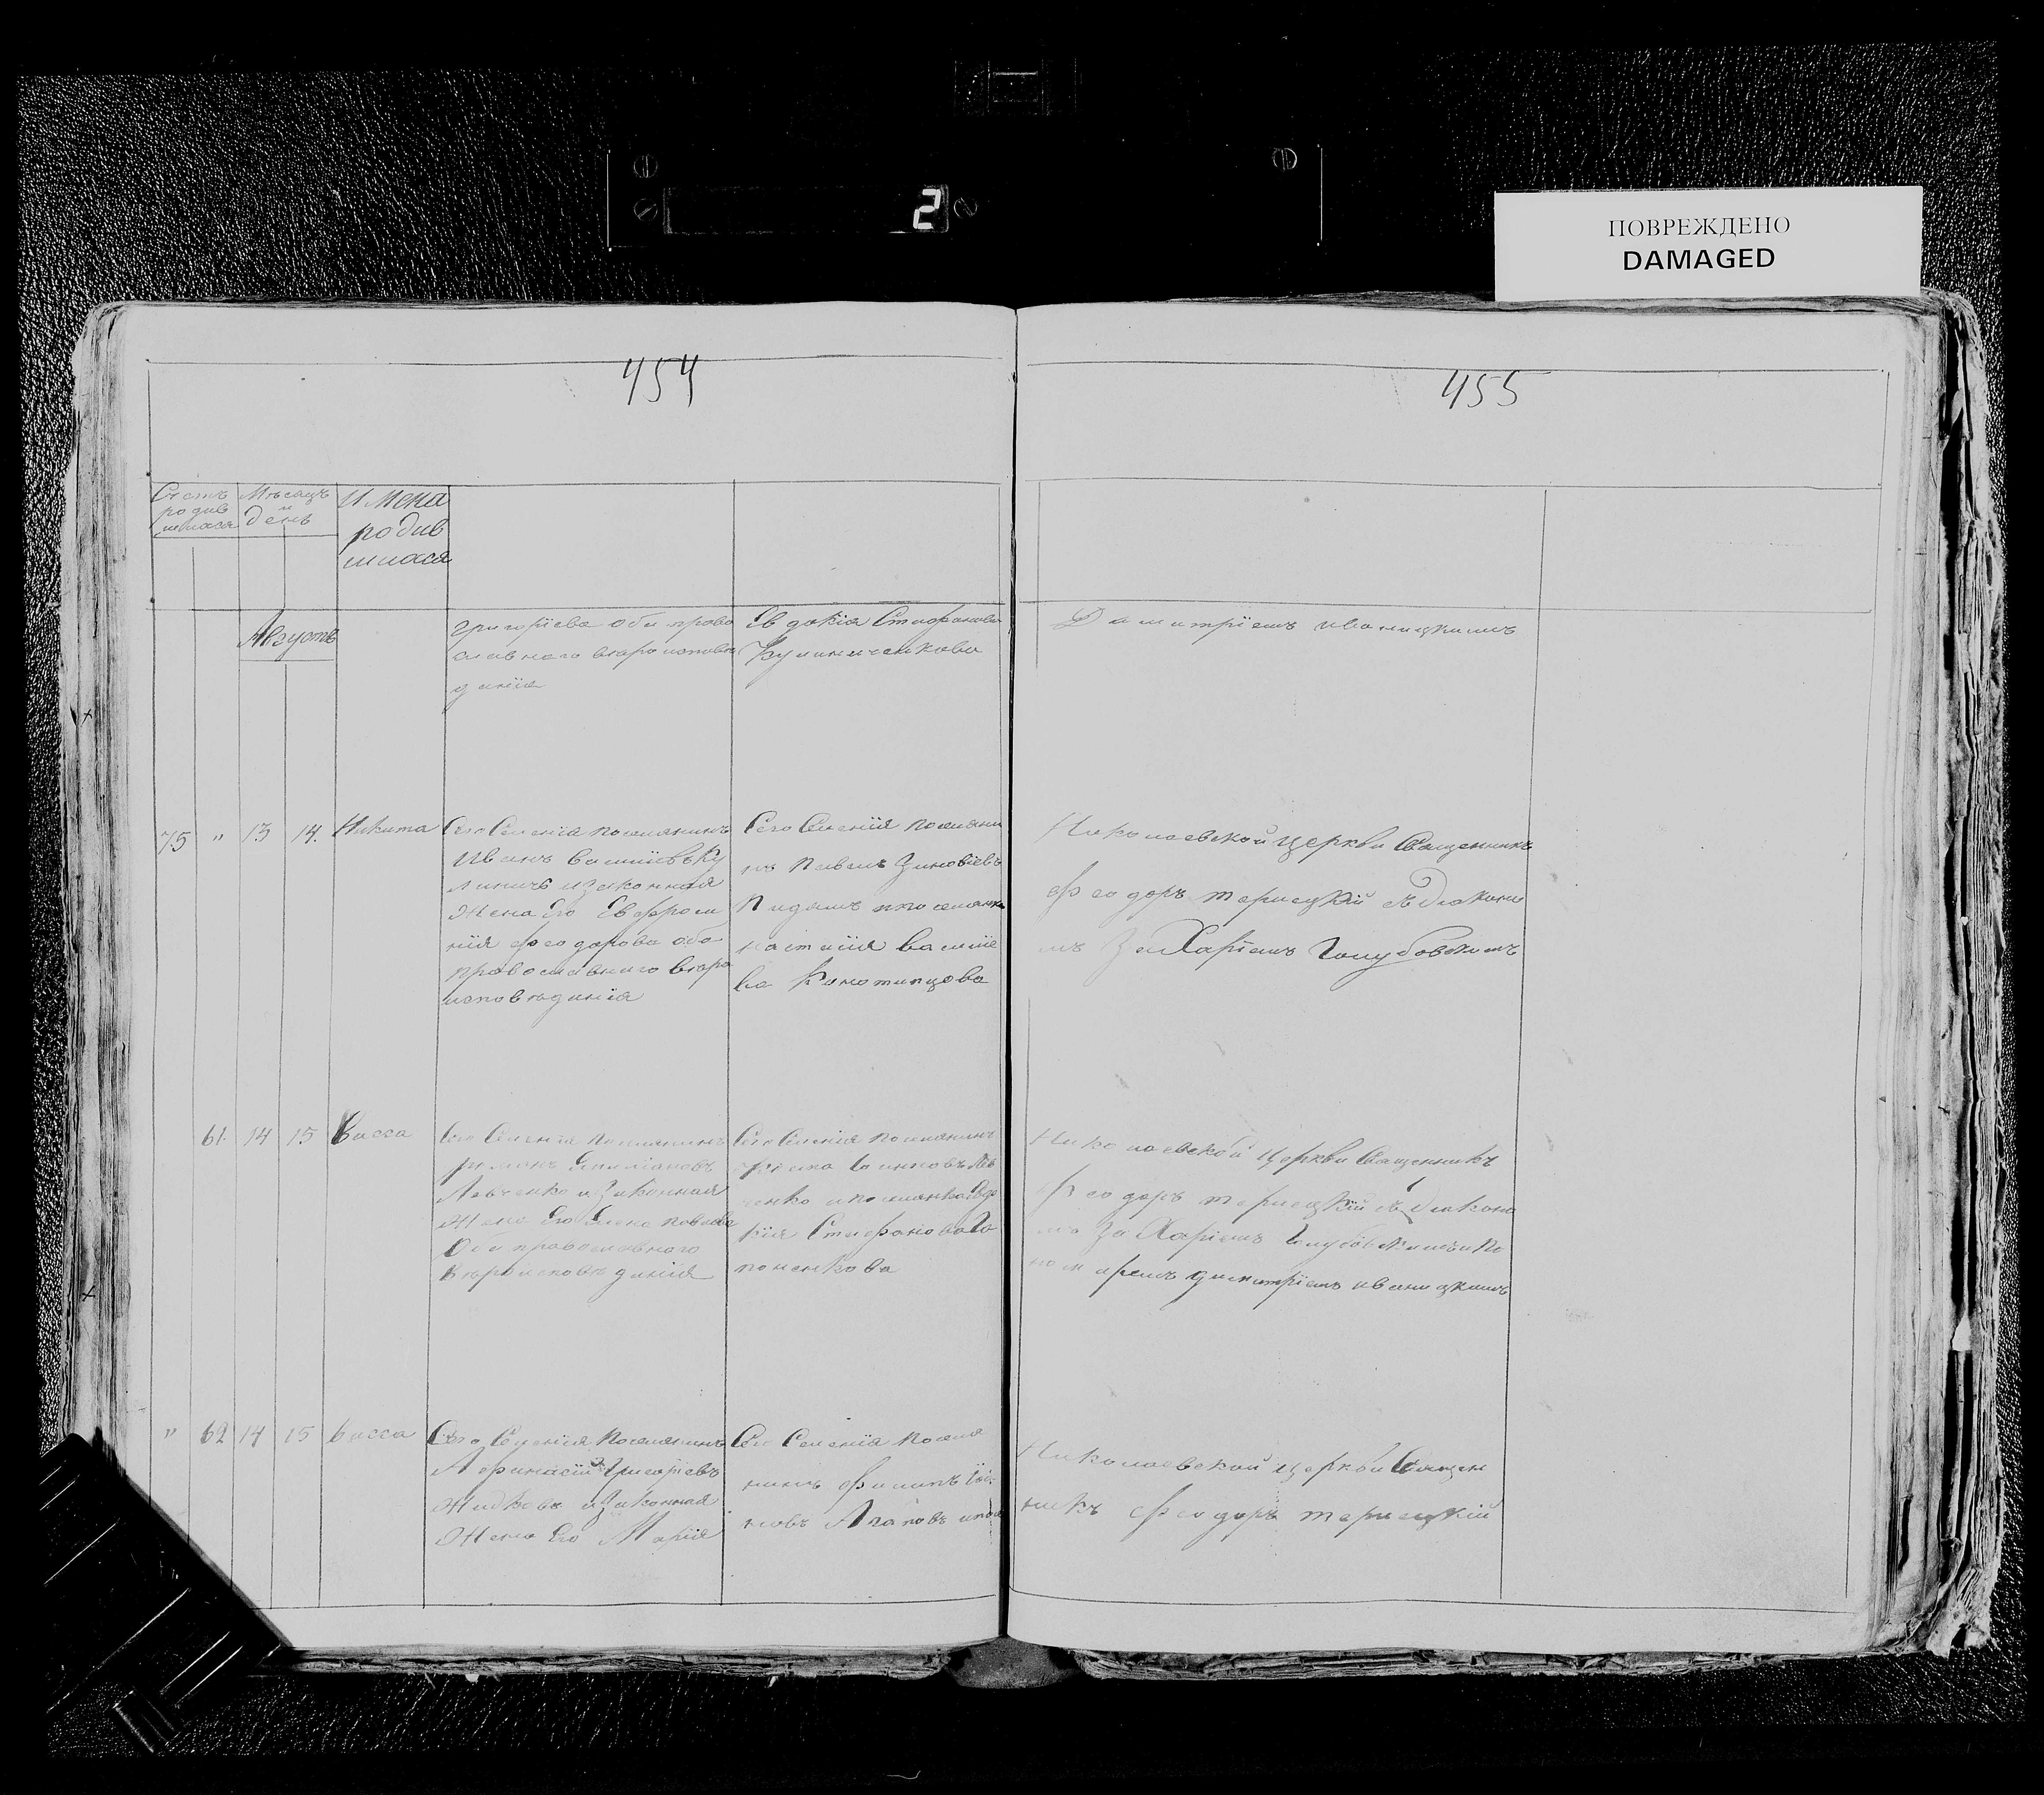 2
ПОВРЕЖДЕНО
DAMAGED
454
455
Счетъ родив шихася
Мѣсяцъ и день
Имена
родив
шихася
Августъ
Григорiева оби право
славнаго вѣро исповѣ
данiя
Евдокiа Стефанова
Кулиниченкова
Димитрiемъ Иваницкимъ
75 " 13 14. Никита
Сего Селенiя поселянинъ
Иванъ Василiевъ Ку
линичь и законная
жена Его Евфроси
нiя Феодорова оба
православнаго вѣро
исповѣданiя
Сего Селенiя поселяни
нъ Павелъ Зиновiевъ
и поселянка
Василiе
ва Конотопцова
Николаевской церкви Священникъ
Феодоръ Терлецкiй съ Дiакono
мъ Захарiемъ Голубовскимъ
61. 14 15 Васса
Сего Селенiя поселянинъ
Левченко и законная
жена Его Елена Павлова
Оба православнаго
вѣроисповѣданiя
Сего Селенiя поселянинъ
ченко и поселянка Евдо
кiя Стефанова
Николаевской Церкви Священникъ
Феодоръ Терлецкiй съ Дiаконо
мъ Захарiемъ Голубовскимъ и по
номаремъ Димитрiемъ Иваницкимъ
" 62 14 15 Васса
Сего Селенiя поселянинъ
Афанасiй Григорiевъ
и законная
жена Его Марiя
Сего Селенiя поселя
нинъ Филипъ
Николаевской церкви Священ
никъ Феодоръ Терлецкiй